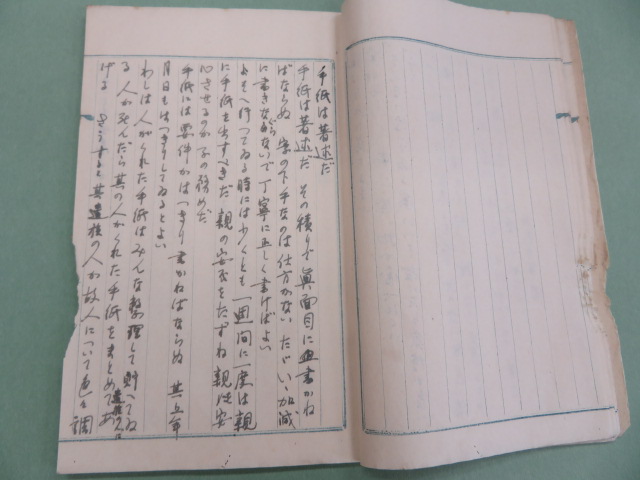 手紙は著述だ
手紙は著述だ その積りで真面目に書かね
ばならぬ 字の下手なのは仕方がない たゞいゝ加減
に書きなぐらないで丁寧に正しく書けばよい
よそへ行つてゐる時には少くとも一週間に一度は親
に手紙を出すべきだ 親の安否をたずね親に安
心させるのが子の務めだ
手紙には要件がはつきり書かねばならぬ 其上年
月日もはつきりしてゐるとよい
わしは人がくれた手紙はみんな整理して
る 人が死んだら其の人がくれた手紙をまとめて遺族の人にあ
げる さうすると其遺族の人が故人について色々調